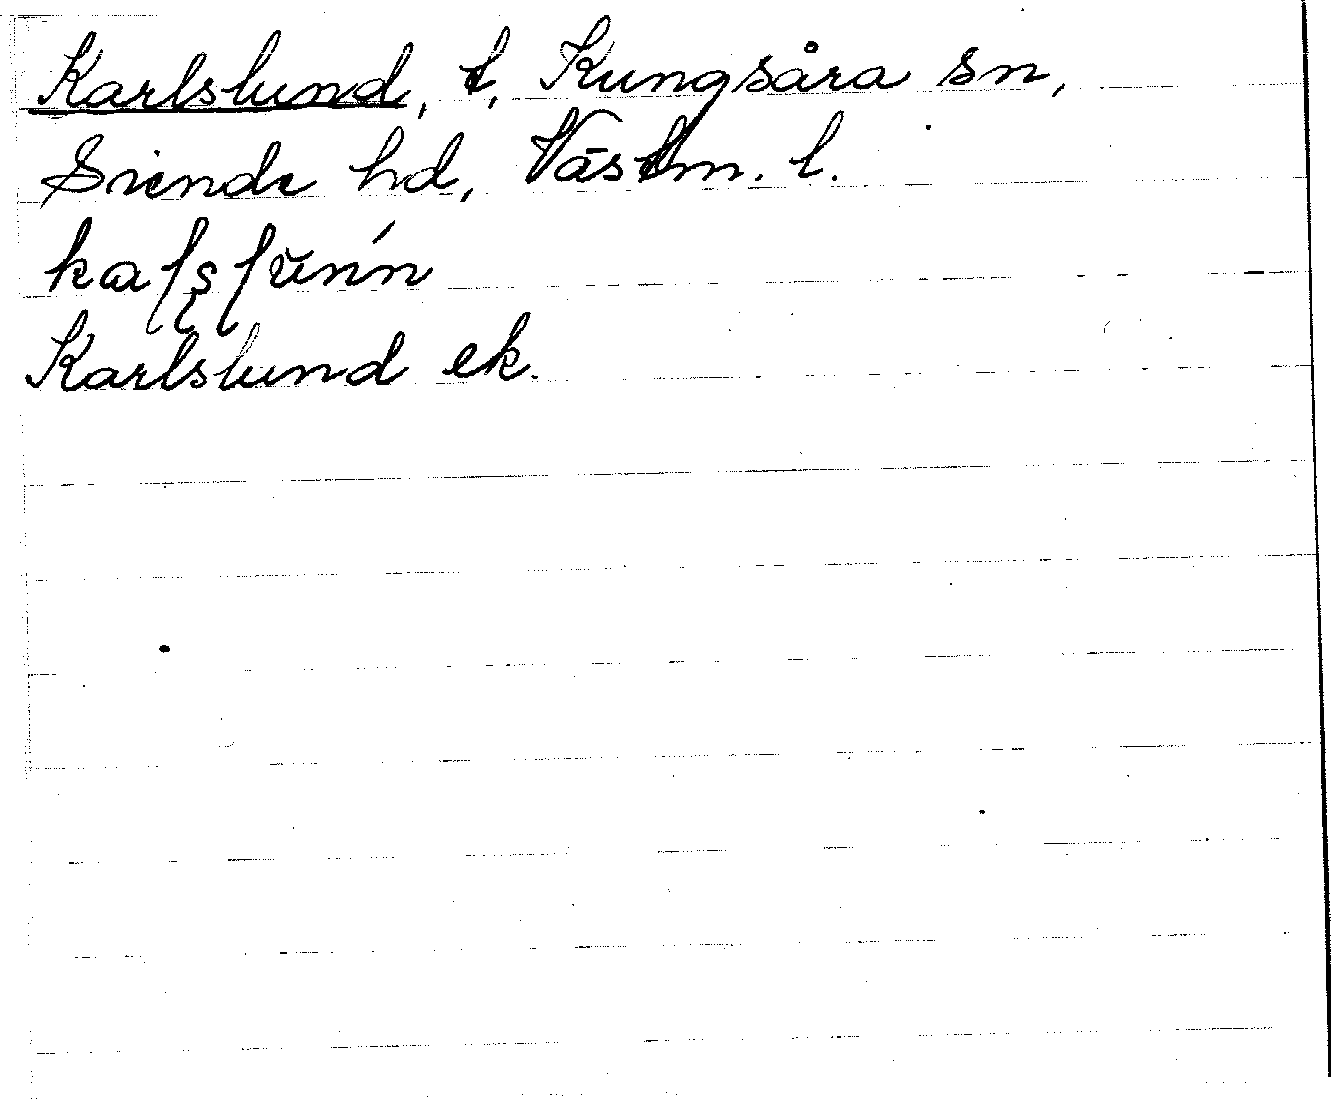 Karlslund, t, Kungsåra sn,
Siende hd, Västm. l.
Karlslund ek.